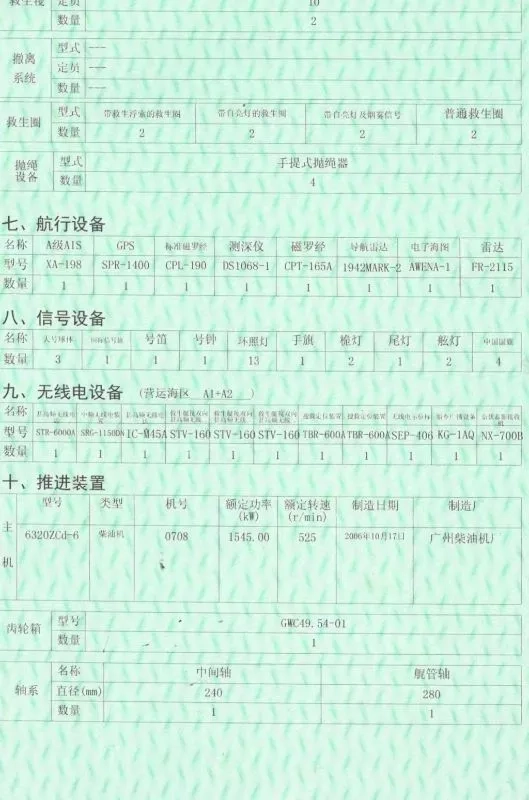 救生筏 定员 10
数量 2
撤离系统 型式 ---
定员 ---
数量 ---
救生圈 型式 带救生浮索的救生圈 带自亮灯的救生圈 带自亮灯及烟雾信号 普通救生圈
数量 2 2 2 2
抛绳设备 型式 手提式抛绳器
数量 4
七、航行设备
名称 A级AIS GPS 标准磁罗经 测深仪 磁罗经 导航雷达 电子海图 雷达
型号 XA-198 SPR-1400 CPL-190 DS1068-1 CPT-165A 1942MARK-2 AWENA-1 FR-2115
数量 1 1 1 1 1 1 1 1
八、信号设备
名称 大号球体 国际信号旗 号笛 号钟 环照灯 手旗 桅灯 尾灯 舷灯 中国国旗
数量 3 1 1 1 13 1 2 1 2 4
九、无线电设备 (营运海区 A1+A2 )
名称 救生艇筏双向 救生艇筏双向 救生艇筏双向 搜救定位装置 搜救定位装置
型号 STR-6000A SRG-1150DN IC-M45A STV-160 STV-160 STV-160 TBR-600A TBR-600A SEP-406 KG-1AQ NX-700B
数量 1 1 1 1 1 1 1 1 1 1 1
十、推进装置
主机 型号 类型 机号 额定功率(kW) 额定转速(r/min) 制造日期 制造厂
6320ZCd-6 柴油机 0708 1545.00 525 2006年10月17日 广州柴油机厂
齿轮箱 型号 GWC49.54-01
数量 1
轴系 名称 中间轴 艉管轴
直径(mm) 240 280
数量 1 1